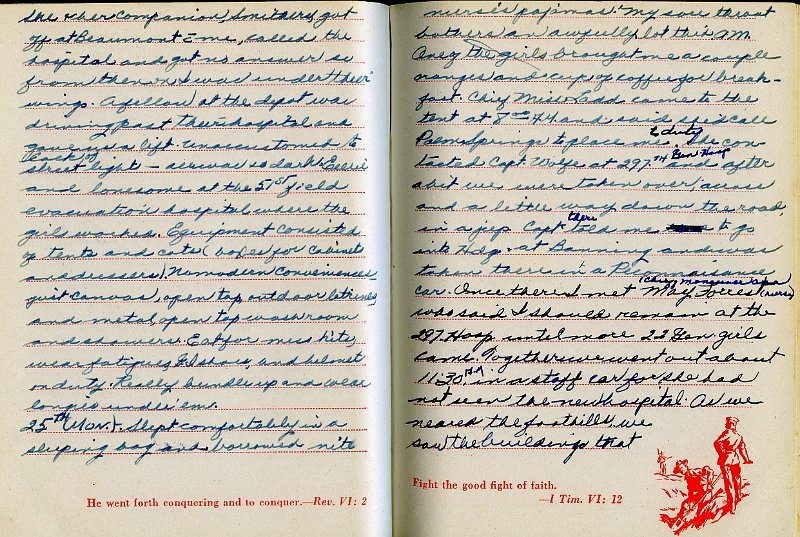 she & her companion Smithers, got
off at Beaumont & me, called the
hospital and got no answer so
from then on I was under their
wings. A fellow at the depot was
driving past their hospital and
gave us a lift. Unaccustomed to
lack of
street light — as was so dark & eerie
and lonesome at the 51st field
evacuation hospital where the
girls worked. Equipment consisted
of tents and cots (boxes for cabinets
and dressers). No modern conveniences
just canvas, open top outdoor latrines,
and metal, open top washroom
and showers. Eat from mess kits,
wear fatigues, G.I. shoes, and helmet
on duty. Really bundle up and wear
longies in here.
25TH (Mon.). Slept comfortably in a
sleeping bag and borrowed nite
He went forth conquering and to conquer.—Rev. VI: 2
nurse's pajamas. My sore throat
bothers an awfully lot this A.M.
Only the girls brought me a couple
oranges and cup of coffee for break-
fast. Chief Miss Ladd came to the
tent at 8 and said she'd call
to duty
Palm Springs to place me. She con-
tacted Capt. Wolfe at 297TH Gen Hosp and after
a bit we were taken over across
and a little way down the road,
in a jeep. Capt. there told me to go
into Hdq. at Banning and was
taken there in a Reconnaissance
car. Once there I met May Forrest (nurse)
(Chief maneuver area
who said I should remain at the
297 Hosp until more 22 Gen girls
came. Together we went out about
11:30 A.M. in a staff car for she had
not seen the new hospital. As we
neared the foothills, we
saw the buildings that
Fight the good fight of faith.
—I Tim. VI: 12